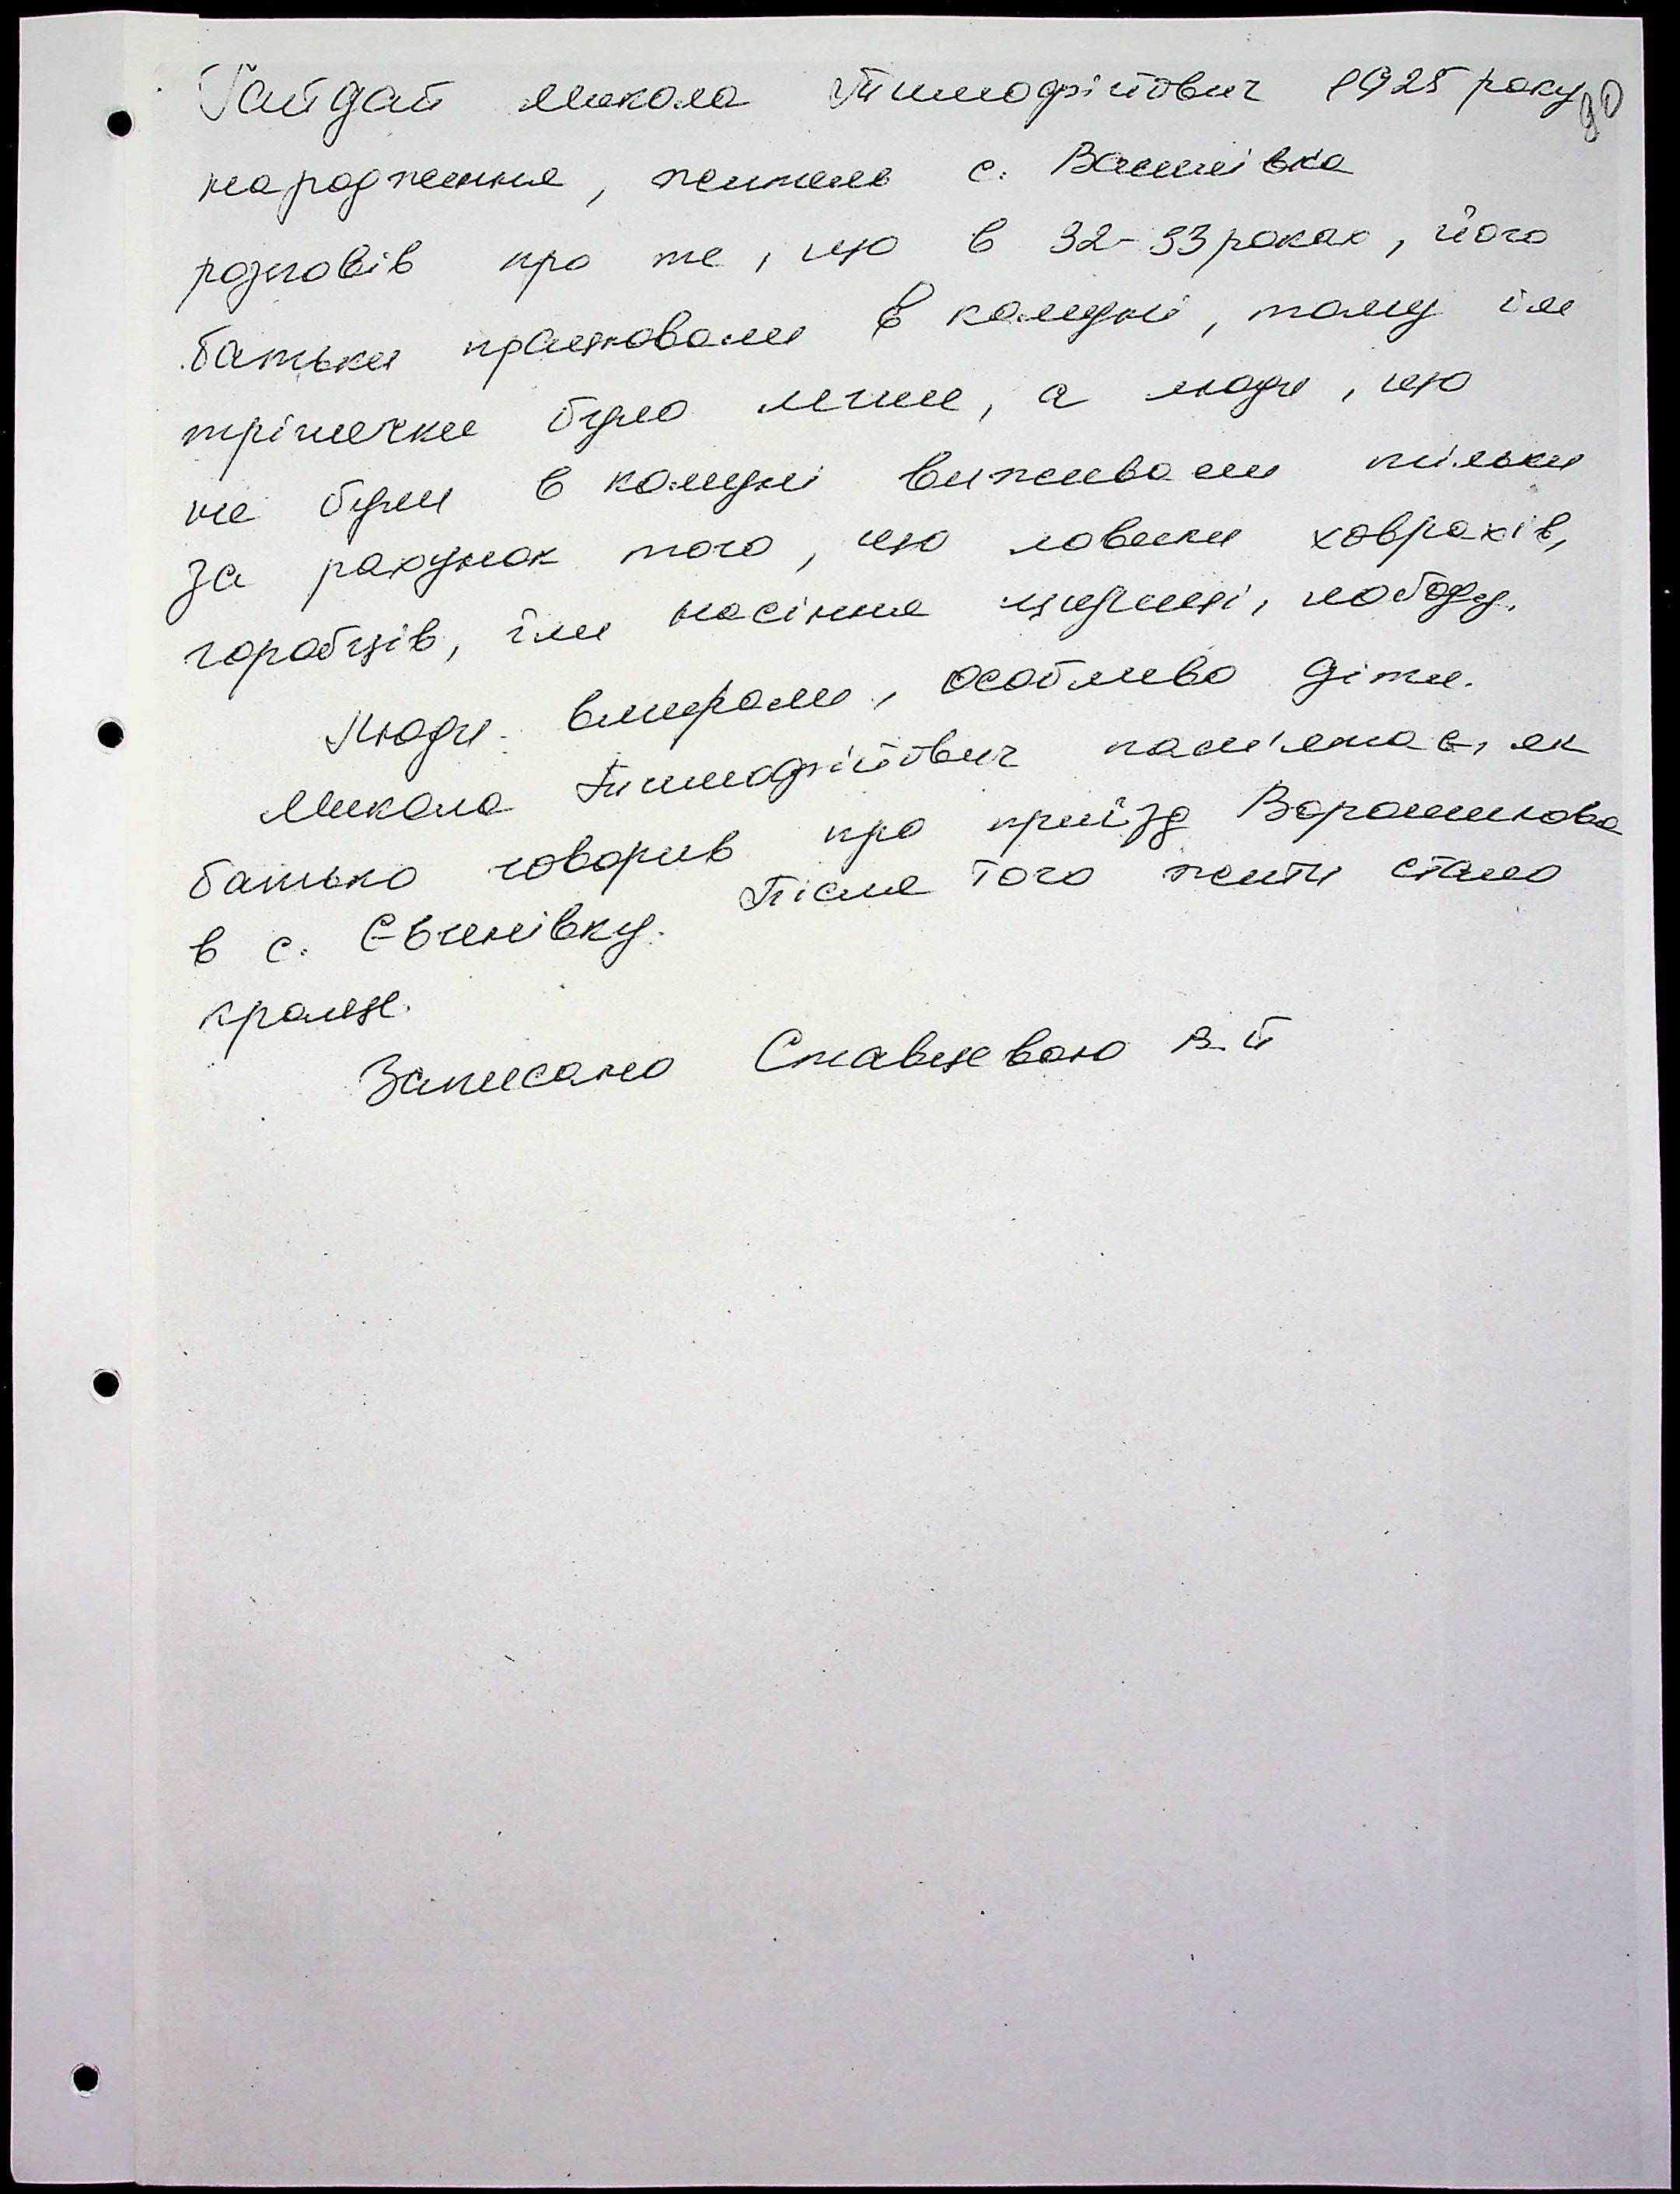 Гайдай Микола Тимофійович 1925 року
народження, житель с.
розповів про те, що в 32-33 роках, його
батьки працювали в комуні, тому їм
трішечки було легше, а люди, що
не були в комуні виживали тільки
за рахунок того, що ловили ховрахів,
горобців, їли насіння щириці, лободу.
Люди вмирали, особливо діти.
Микола Тимофійович пам'ятає, як
батько говорив про приїзд Ворошилова
в с. Євгенівку. Після того жити стало
краще.
Записано Ставцевою В.Й